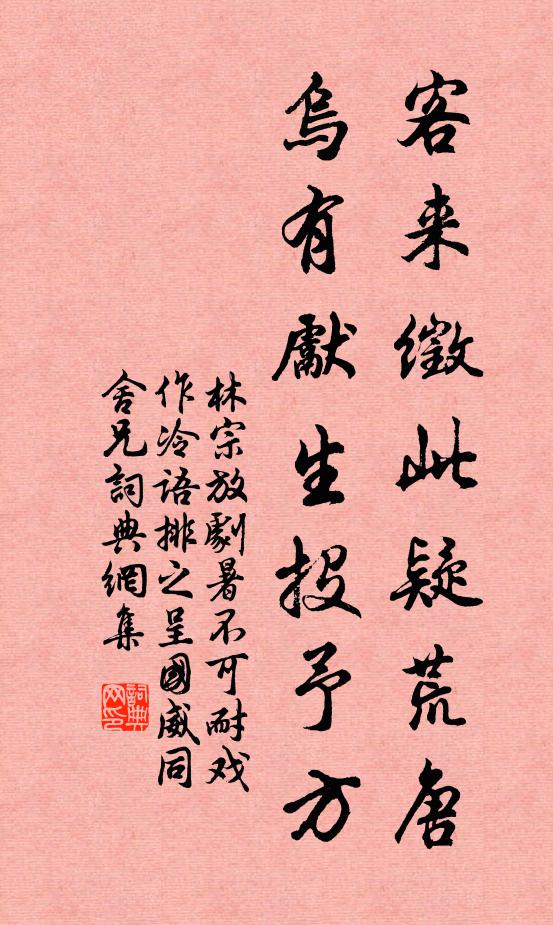 客来徵此疑荒唐
烏有獻生投予方
林宗放劇暑不可耐戏
作冷语排之呈國威同
舍兄詞典網集
詞典
网印